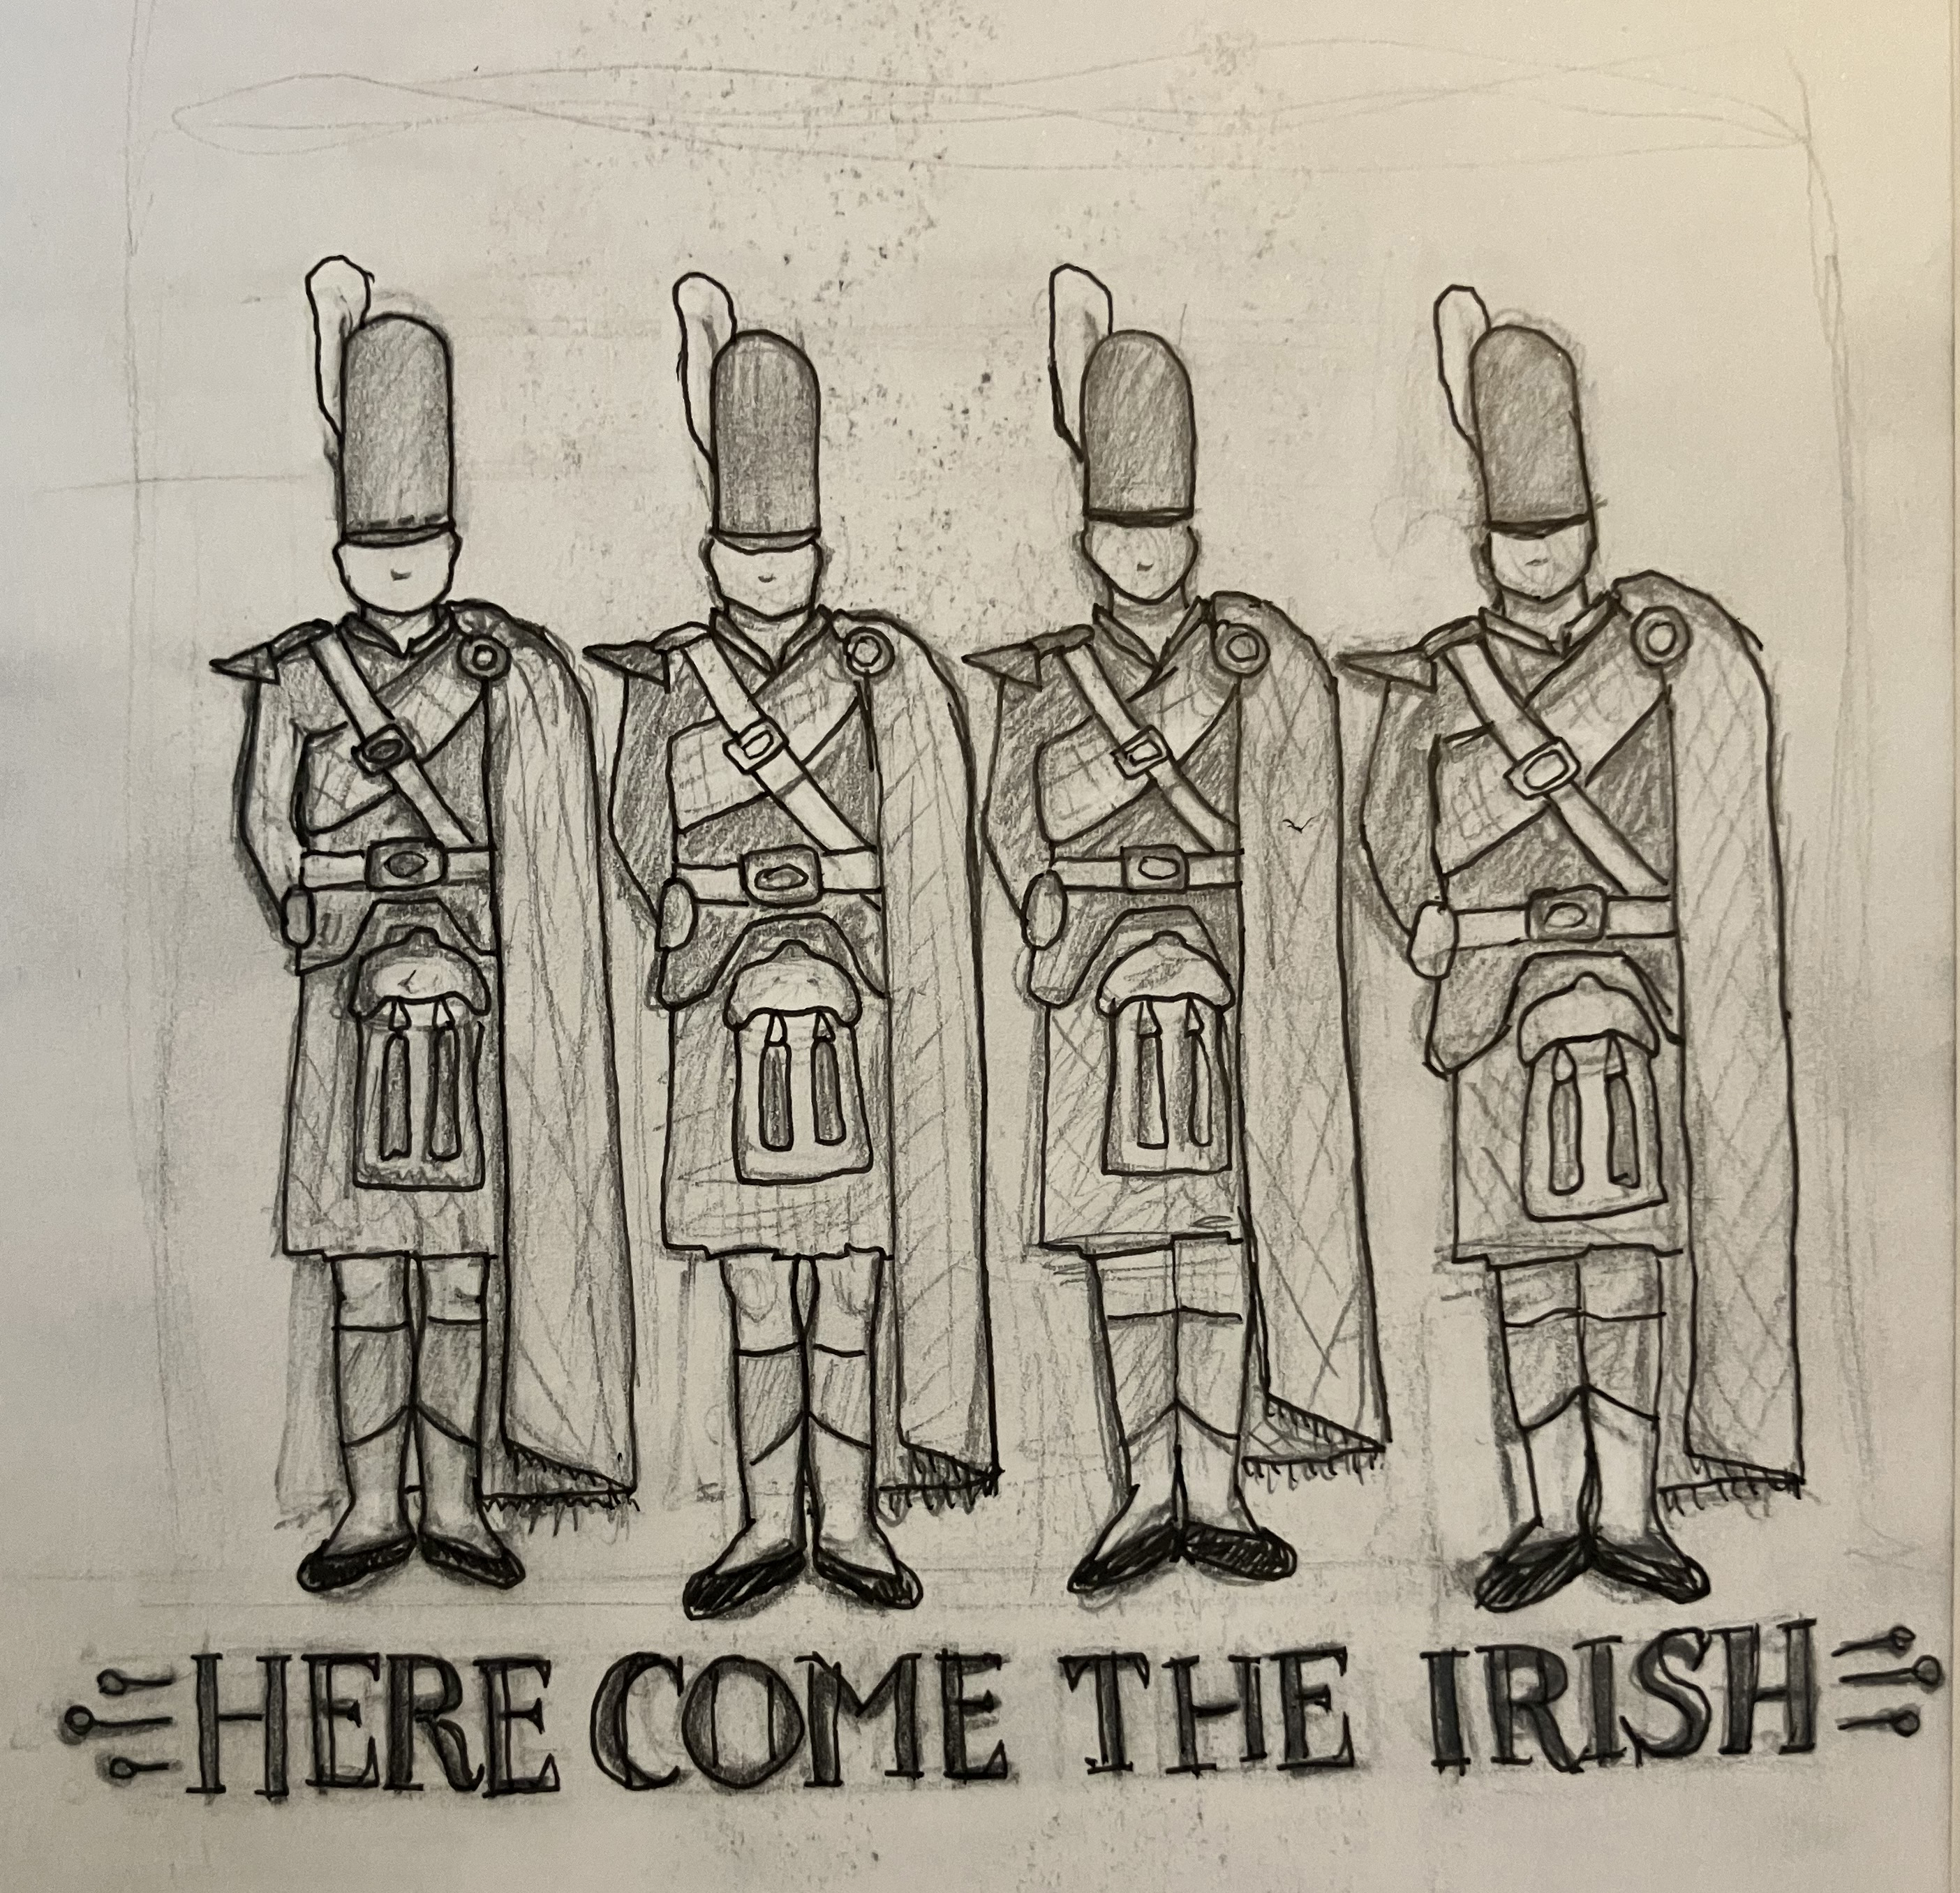 HERE COME THE IRISH